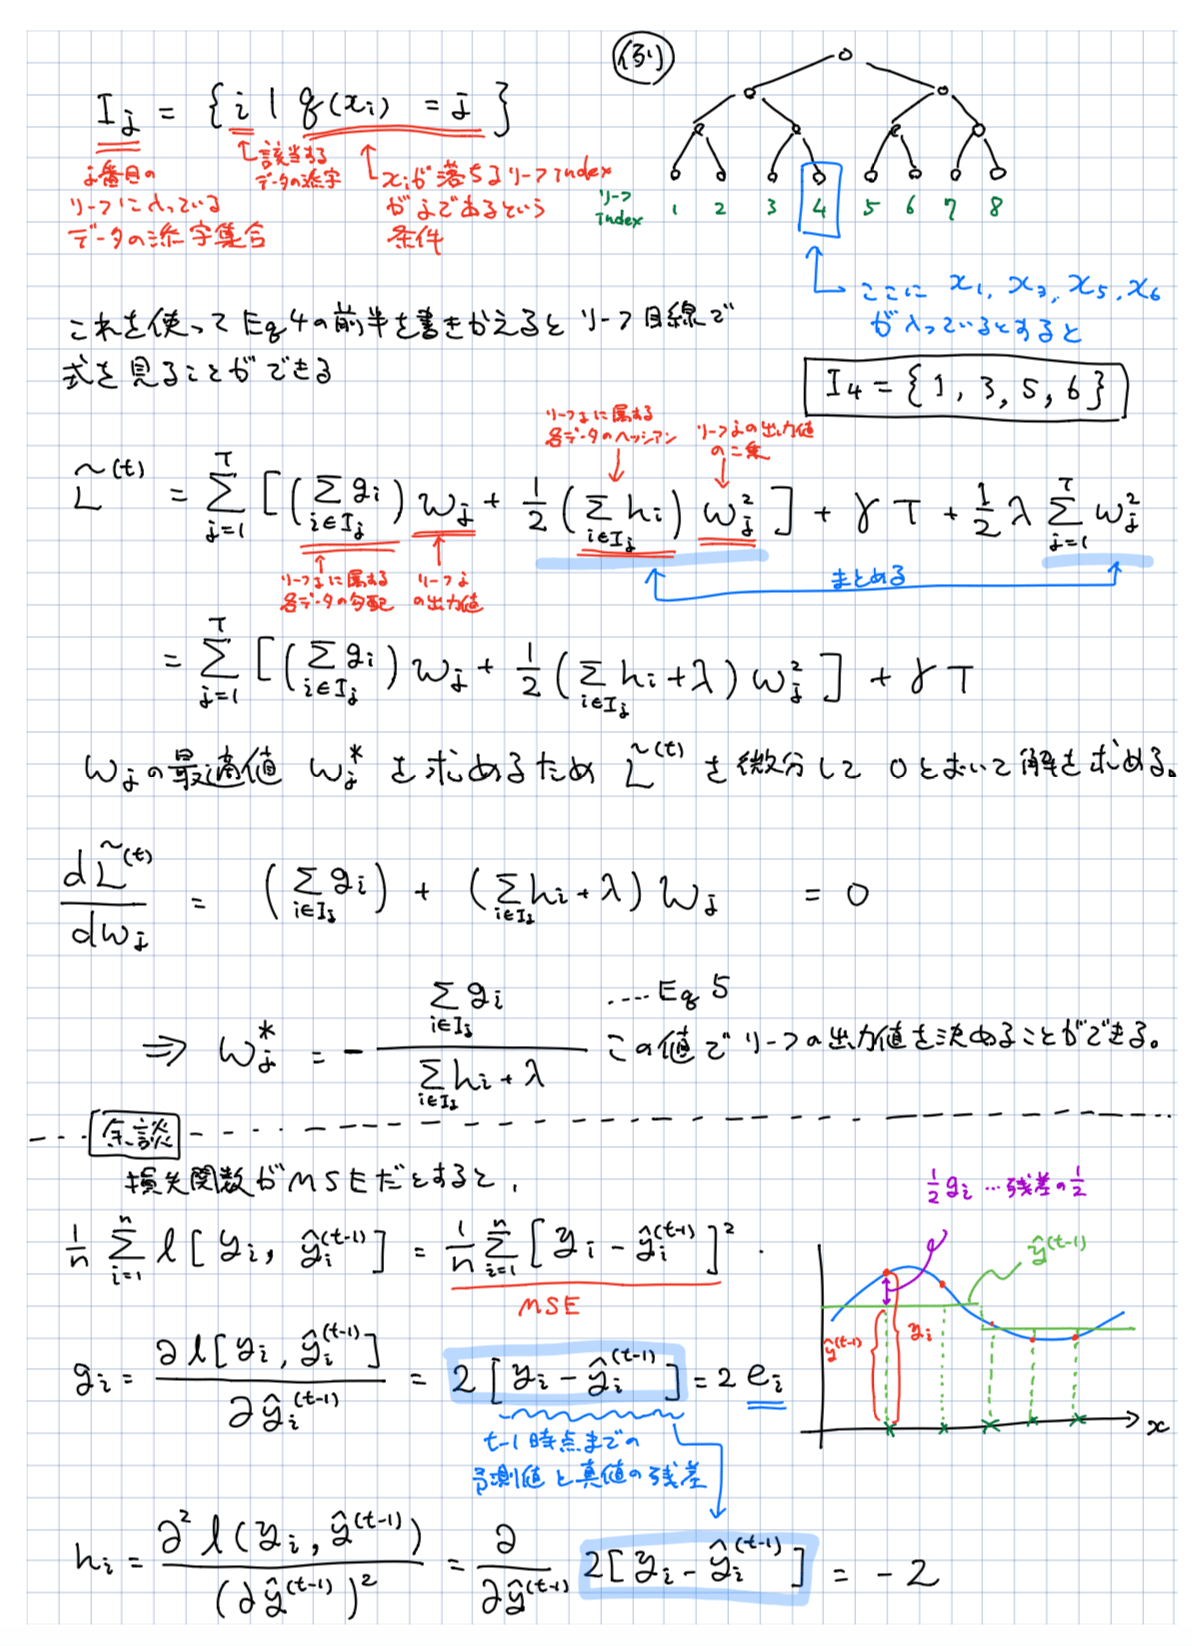 例)
I_j = { i | q(x_i) = j }
j番目の
リーフに入っている
データの添字集合
該当する
データの添字
x_iが落ちるリーフIndex
がjであるという
条件
リーフ
Index
1 2 3 4 5 6 7 8
ここに x_1, x_3, x_5, x_6
が入っているとすると
I_4 = { 1, 3, 5, 6 }
これを使って Eq 4の前半を書きかえると リーフ目線で
式を見ることができる
リーフjに属する
各データのヘッシアン
リーフjの出力値
の二乗
L̃^(t) = Σ_{j=1}^{T} [ ( Σ_{i∈I_j} g_i ) w_j + 1/2 ( Σ_{i∈I_j} h_i ) w_j^2 ] + γ T + 1/2 λ Σ_{j=1}^{T} w_j^2
リーフjに属する
各データの勾配
リーフj
の出力値
まとめる
= Σ_{j=1}^{T} [ ( Σ_{i∈I_j} g_i ) w_j + 1/2 ( Σ_{i∈I_j} h_i + λ ) w_j^2 ] + γ T
w_jの最適値 w_j^* を求めるため L̃^(t) を微分して 0とおいて解を求める。
dL̃^(t)/dw_j = ( Σ_{i∈I_j} g_i ) + ( Σ_{i∈I_j} h_i + λ ) w_j = 0
⇒ w_j^* = - Σ_{i∈I_j} g_i / Σ_{i∈I_j} h_i + λ
.... Eq 5
この値でリーフの出力値を決めることができる。
余談
損失関数がMSEだとすると,
1/n Σ_{i=1}^{n} l[ y_i, ŷ_i^(t-1) ] = 1/n Σ_{i=1}^{n} [ y_i - ŷ_i^(t-1) ]^2 .
MSE
g_i = ∂l[ y_i, ŷ_i^(t-1) ] / ∂ŷ_i^(t-1) = 2 [ y_i - ŷ_i^(t-1) ] = 2 e_i
t-1時点までの
予測値と真値の残差
h_i = ∂^2 l( y_i, ŷ^(t-1) ) / (∂ŷ^(t-1))^2 = ∂/∂ŷ^(t-1) 2[ y_i - ŷ_i^(t-1) ] = -2
1/2 g_i … 残差の1/2
ŷ^(t-1)
ŷ^(t-1)
y_i
x